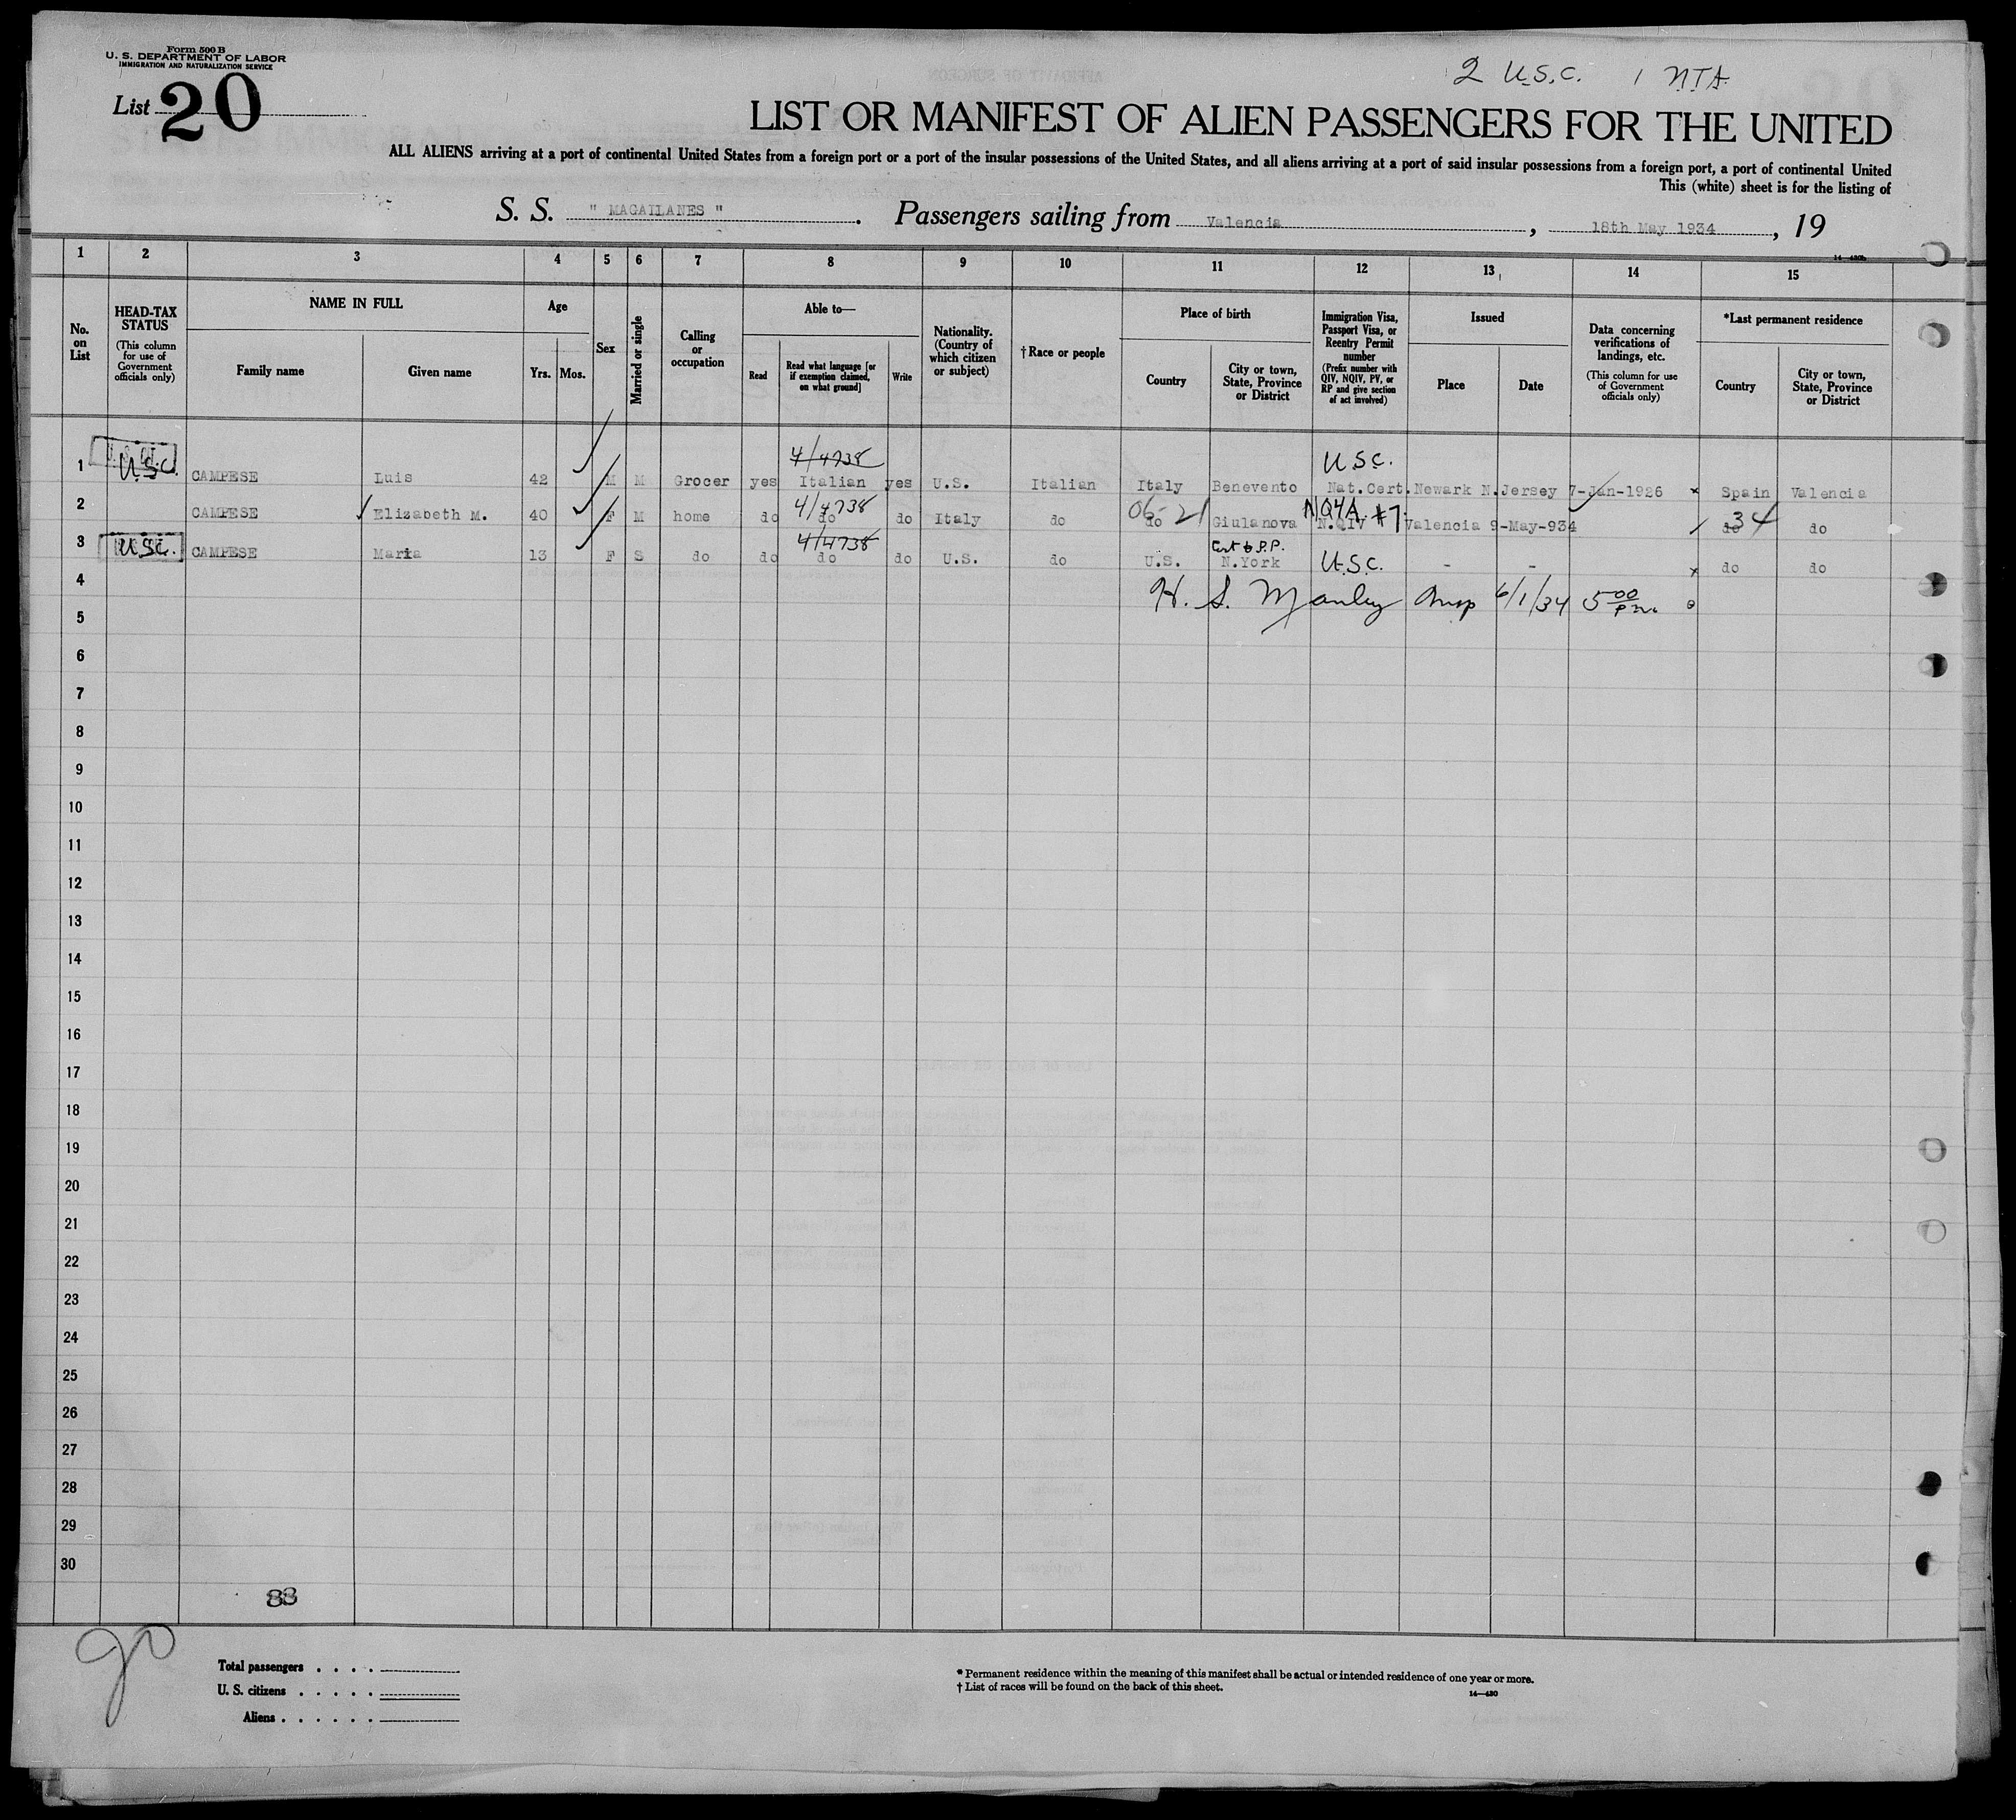 Form 500 B
U. S. DEPARTMENT OF LABOR
IMMIGRATION AND NATURALIZATION SERVICE
List 20
2 U.S.C. 1 NTA
LIST OR MANIFEST OF ALIEN PASSENGERS FOR THE UNITED
ALL ALIENS arriving at a port of continental United States from a foreign port or a port of the insular possessions of the United States, and all aliens arriving at a port of said insular possessions from a foreign port, a port of continental United
This (white) sheet is for the listing of
S. S. " MAGAILANES " . Passengers sailing from Valencia , 18th May 1934 , 19
14—430b
1 2 3 4 5 6 7 8 9 10 11 12 13 14 15
No. on List
HEAD-TAX STATUS
(This column for use of Government officials only)
NAME IN FULL
Family name Given name
Age
Yrs. Mos.
Sex
Married or single
Calling or occupation
Able to—
Read
Read what language [or if exemption claimed, on what ground]
Write
Nationality. (Country of which citizen or subject)
†Race or people
Place of birth
Country
City or town, State, Province or District
Immigration Visa, Passport Visa, or Reentry Permit number
(Prefix number with QIV, NQIV, PV, or RP and give section of act involved)
Issued
Place Date
Data concerning verifications of landings, etc.
(This column for use of Government officials only)
*Last permanent residence
Country
City or town, State, Province or District
4/4738 U.S.C.
1 U.S.C. CAMPESE Luis 42 M M Grocer yes Italian yes U.S. Italian Italy Benevento Nat.Cert. Newark N.Jersey 7-Jan-1926 x Spain Valencia
4/4738 06-21 NQ4A #7 34
2 CAMPESE Elizabeth M. 40 F M home do do do Italy do do Giulanova N.QIV Valencia 9-May-934 do do
4/4738 Cert b P.P.
3 U.S.C. CAMPESE Maria 13 F S do do do do U.S. do U.S. N.York U.S.C. - - x do do
4
H. S. Manley Insp 6/1/34 5 00 p m.
5
6
7
8
9
10
11
12
13
14
15
16
17
18
19
20
21
22
23
24
25
26
27
28
29
30
83
go
Total passengers . . . .
U. S. citizens . . . . .
Aliens . . . . . .
* Permanent residence within the meaning of this manifest shall be actual or intended residence of one year or more.
† List of races will be found on the back of this sheet.
14—430